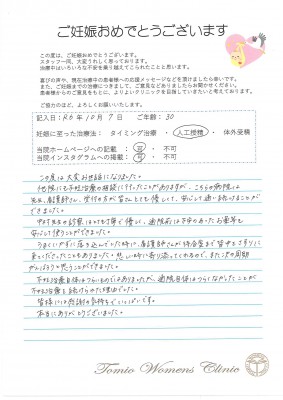 ご妊娠おめでとうございます
この度は、ご妊娠おめでとうございます。
スタッフ一同、大変うれしく思っております。
治療中はいろいろな不安を乗り越えてこられたことと思います。
喜びの声や、現在治療中の患者様への応援メッセージなどを頂けましたら幸いです。
また、妊娠までの治療につきまして、ご意見などありましたらお聞かせください。
患者様からのご意見をもとに、より良いクリニックを目指していきたいと考えております。
ご協力のほど、よろしくお願いいたします。
記入日：R6年12月7日　ご年齢：30
妊娠に至った治療法：タイミング治療・人工授精・体外受精
当院ホームページへの記載：可・不可
当院インスタグラムへの掲載：可・不可
この度は大変お世話になりました。
他院にも不妊治療の相談に行ったことがありますが、こちらの病院は
先生、看護師さん、受付の方が皆さんとても優しくて、安心して通い続けることが
できました。
先生の診察はとても丁寧で優しく、通院前は不安のあったお薬等も
安心して使うことができました。
うまくいかずに落ち込んでいた時に、看護師さんが待合室まで皆さまざりに
来てくださったこともありました。悲しい時に寄り添ってくれるので、また次の周期
がんばろうと思うことができました。
不妊治療自体はつらいものではありましたが、通院自体はつらくなかったことが
不妊治療を続けられた理由でした。
皆様には感謝の気持ちでいっぱいです。
本当にありがとうございました。
Tomio Womens Clinic